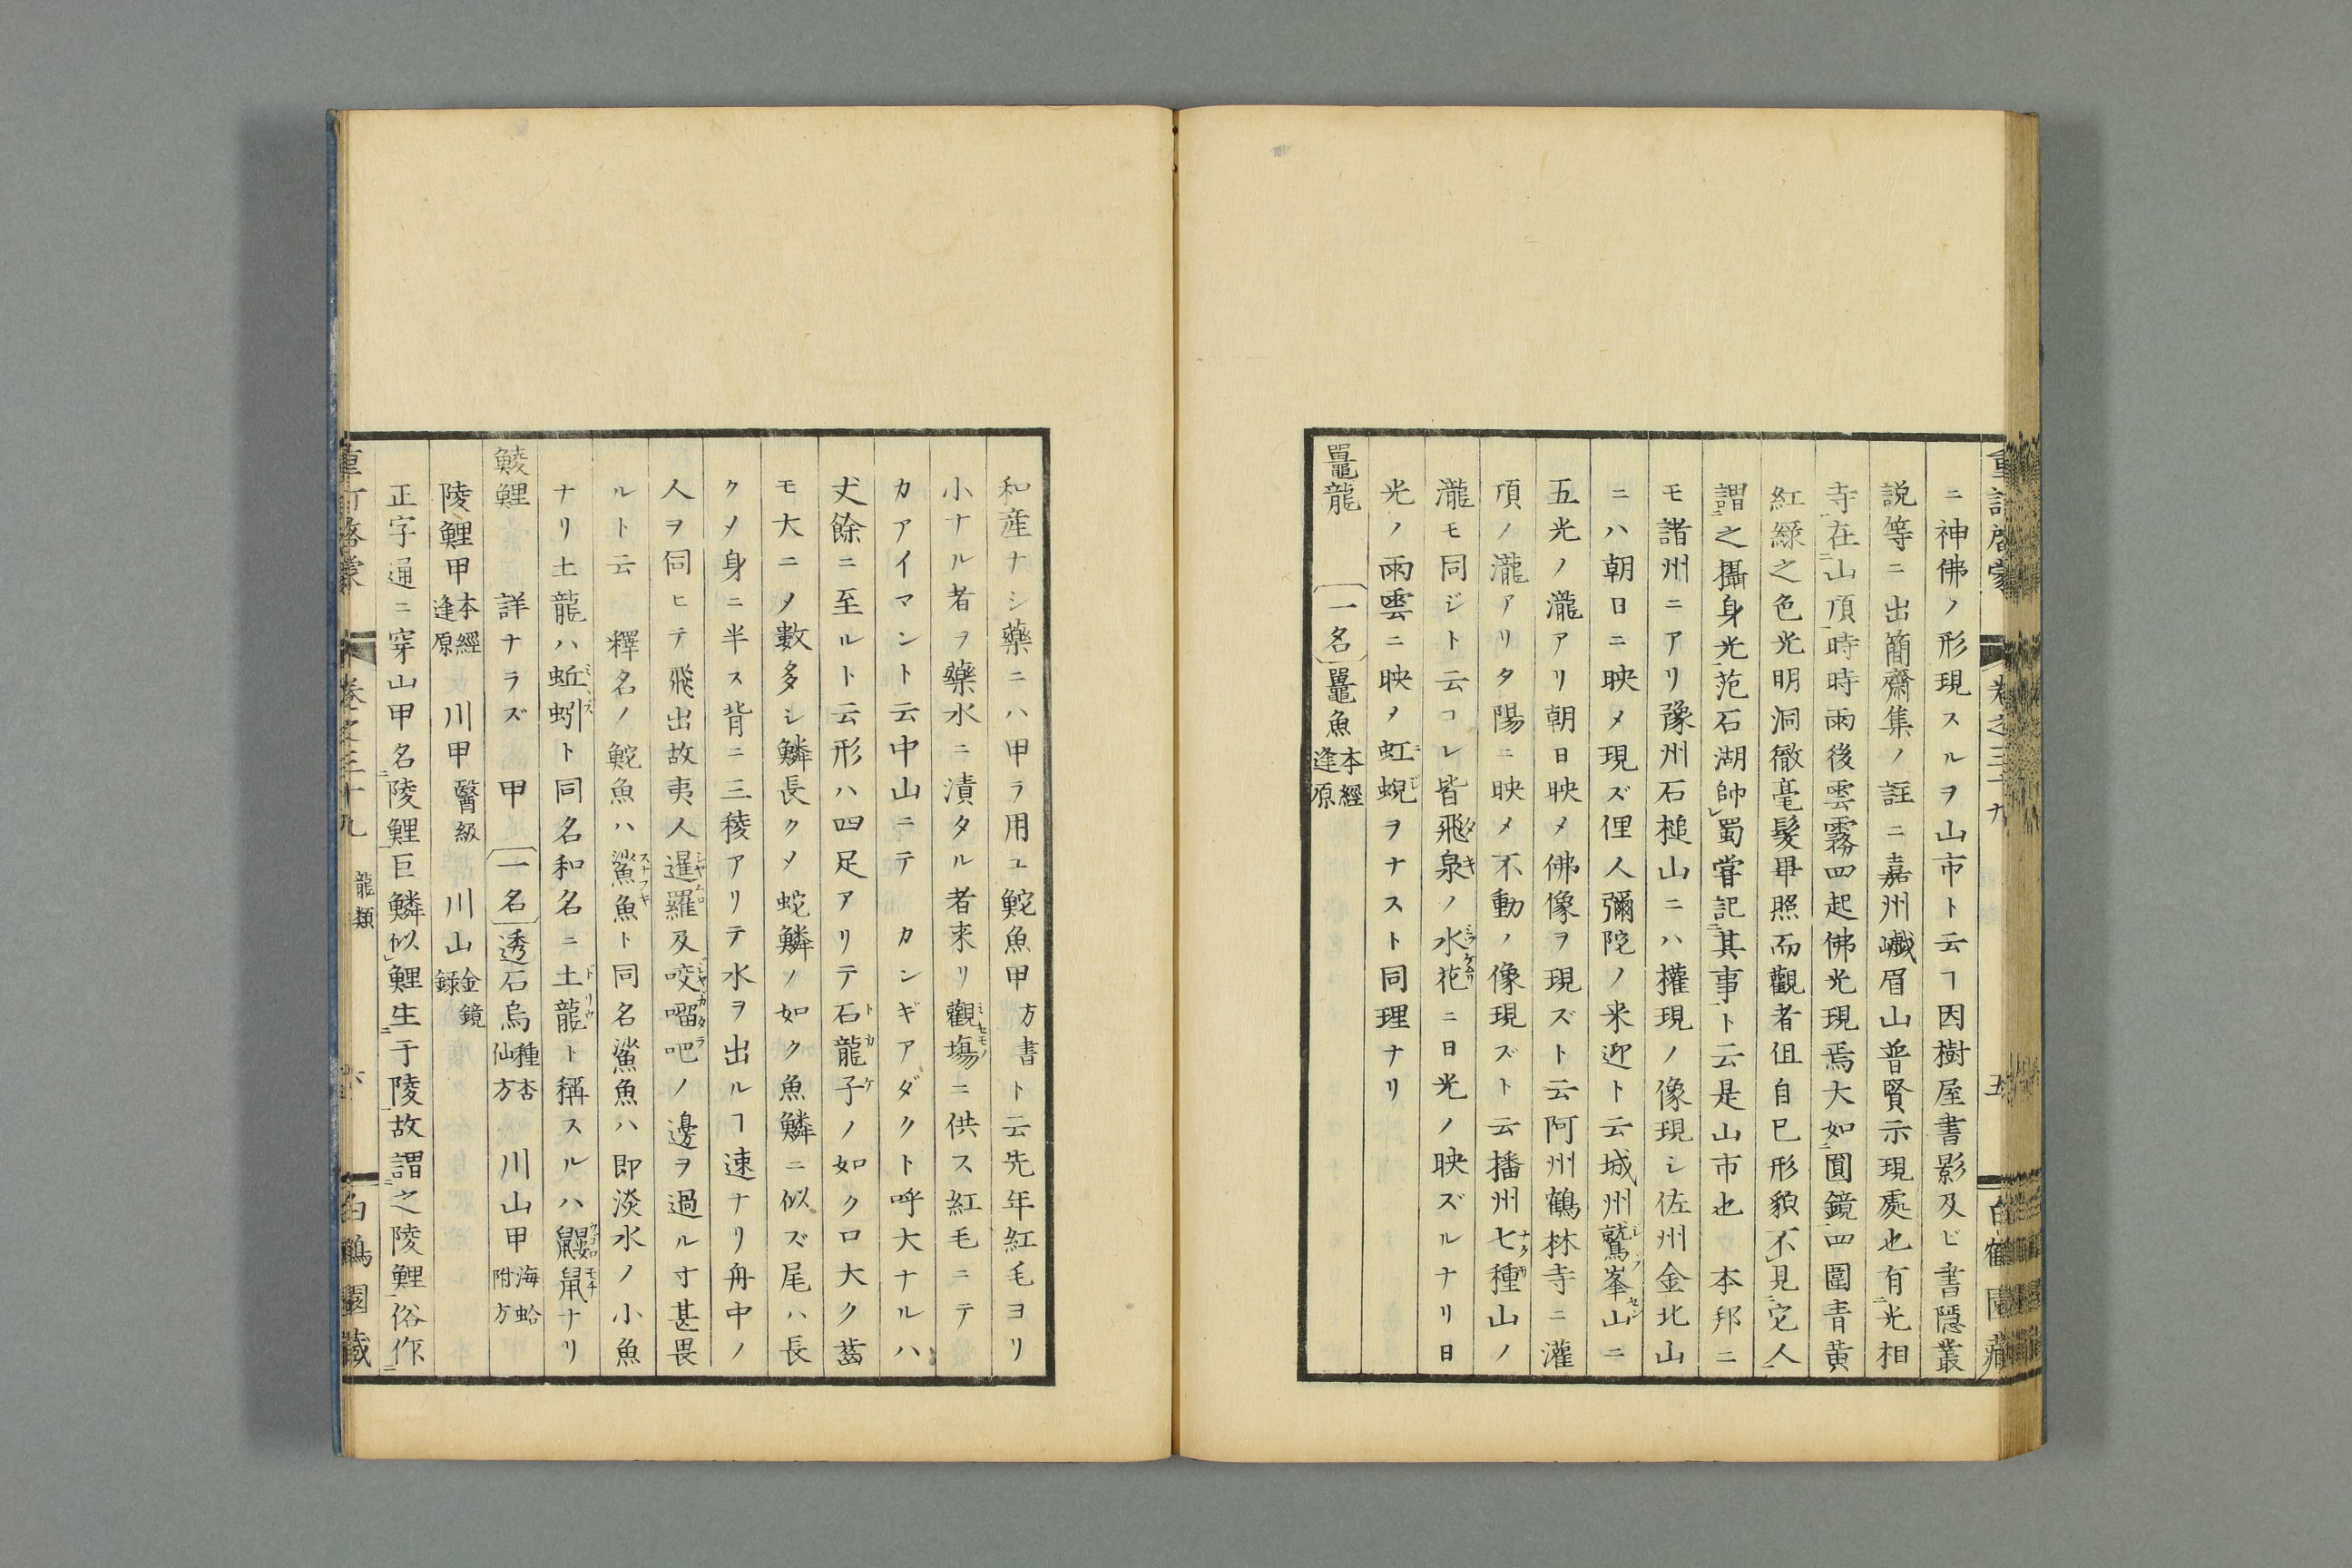 重訂啓蒙 卷之三十九 五 白鶴園藏
ニ神佛ノ形現スルヲ山市ト云ヿ因樹屋書影及ビ書隱叢
説等ニ出簡齋集ノ註ニ嘉州巇眉山普賢示現處也有光相
寺在山頂時時雨後雲霧四起佛光現焉大如圓鏡四圍青黄
紅緑之色光明洞徹毫髪畢照而觀者伹自巳形貌不見它人
謂之攝身光范石湖帥蜀嘗記其事ト云是山市也 本邦ニ
モ諸州ニアリ豫州石槌山ニハ權現ノ像現シ佐州金北山
ニハ朝日ニ映メ現ズ俚人彌陀ノ来迎ト云城州鷲峯山ニ
五光ノ瀧アリ朝日映メ佛像ヲ現ズト云阿州鶴林寺ニ灌
頂ノ瀧アリタ陽ニ映メ不動ノ像現ズト云播州七種山ノ
瀧モ同ジト云コレ皆飛泉ノ水花ニ日光ノ映ズルナリ日
光ノ雨雲ニ映メ虹蜺ヲナスト同理ナリ
鼉龍 〔一名〕鼉魚本經逢原
和産ナシ藥ニハ甲ラ用ユ鮀魚甲方書ト云先年紅毛ヨリ
小ナル者ヲ藥水ニ漬タル者来リ觀塲ニ供ス紅毛ニテ
カアイマント云中山ニテ カンギアダクト呼大ナルハ
丈餘ニ至ルト云形ハ四足アリテ石龍子ノ如ク口大ク齒
モ大ニメ數多シ鱗長クメ蛇鱗ノ如ク魚鱗ニ似ズ尾ハ長
クメ身ニ半ス背ニ三稜アリテ水ヲ出ルヿ速ナリ舟中ノ
人ヲ伺ヒテ飛出故夷人暹羅及咬𠺕吧ノ邊ヲ過ル寸甚畏
ルト云 釋名ノ鮀魚ハ鯊魚ト同名鯊魚ハ即淡水ノ小魚
ナリ土龍ハ蚯蚓ト同名和名ニ土龍ト稱スルハ鼹鼠ナリ
鯪鯉 詳ナラズ 甲〔一名〕透石烏種杏仙方 川山甲海蛤附方
陵鯉甲本經逢原 川甲醫級 川山金鏡録
正字通ニ穿山甲名陵鯉巨鱗似鯉生于陵故謂之陵鯉俗作
重訂啓蒙 卷之三十九 龍類 六 白鶴園藏